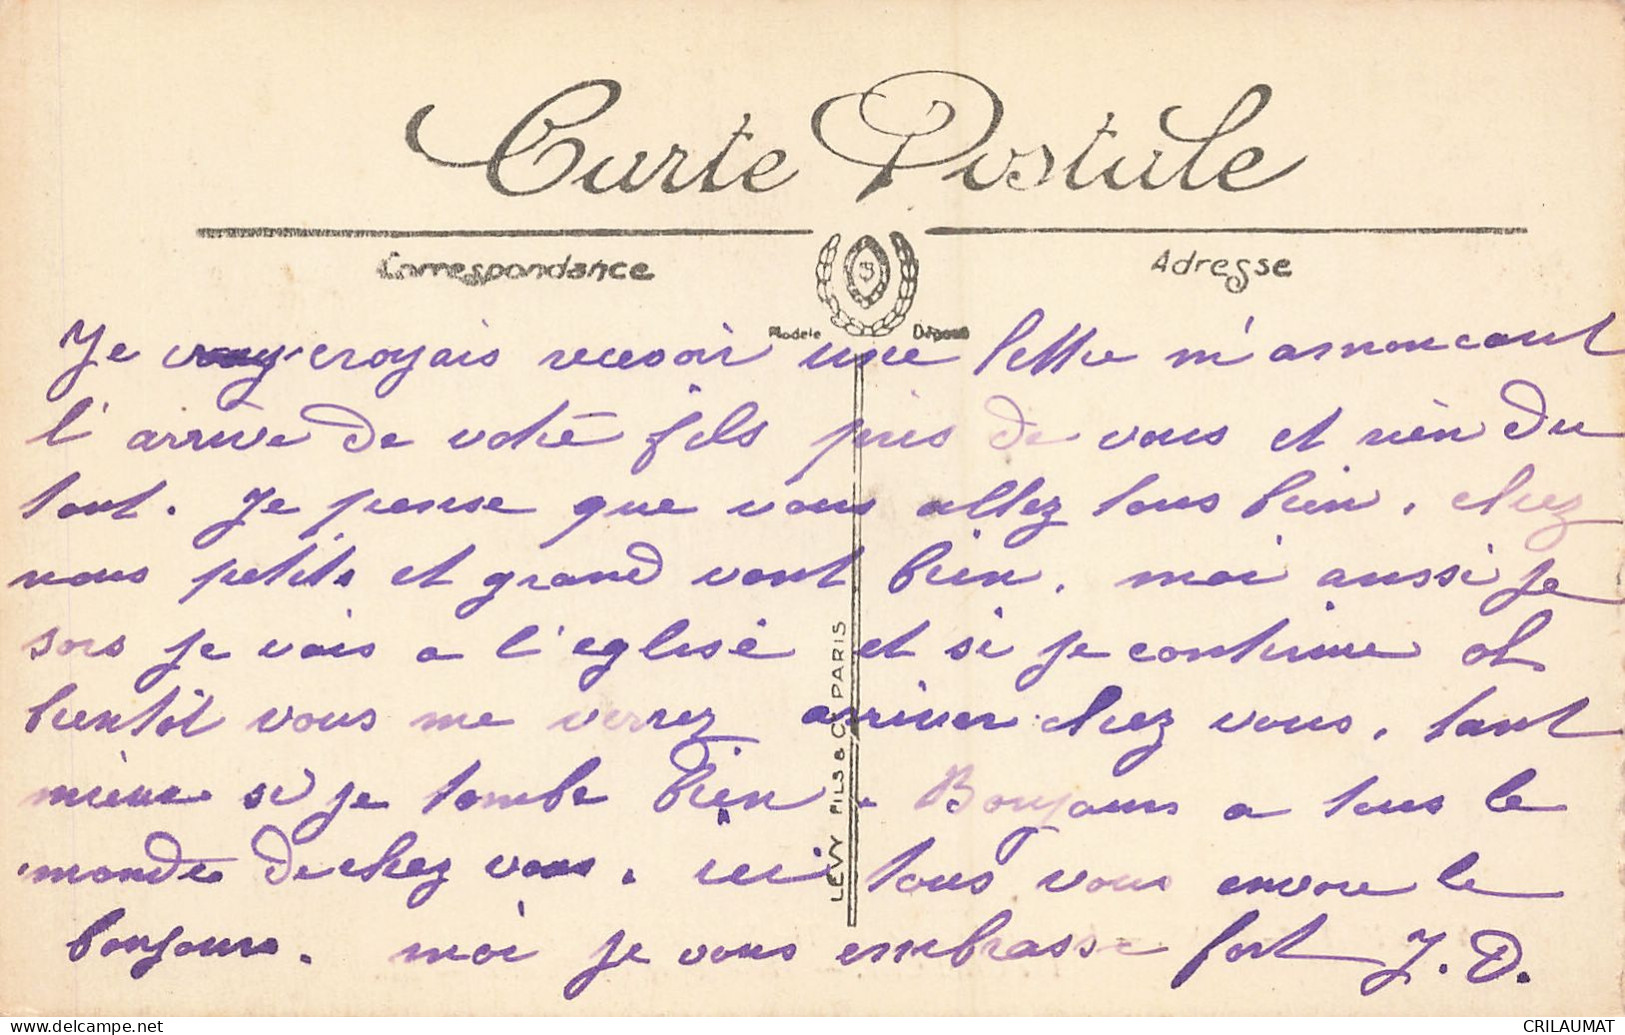 Carte Postale
Correspondance
Adresse
Modèle Déposé
Je croyais recevoir une lettre m'annoncant
l'arrive de votre fils pres de vous et rien du
tout. Je pense que vous allez tous bien. chez
nous petits et grand vont bien. moi aussi je
sors je vais a l'eglise et si je continue et
bientôt vous me verrez arriver chez vous. tant
mieux si je tombe bien. Bonjour a tous le
monde de chez vous. ici tous vous envore le
bonjour. moi je vous embrasse fort J. D.
LEVY FILS & Cº PARIS
CRILAUMAT